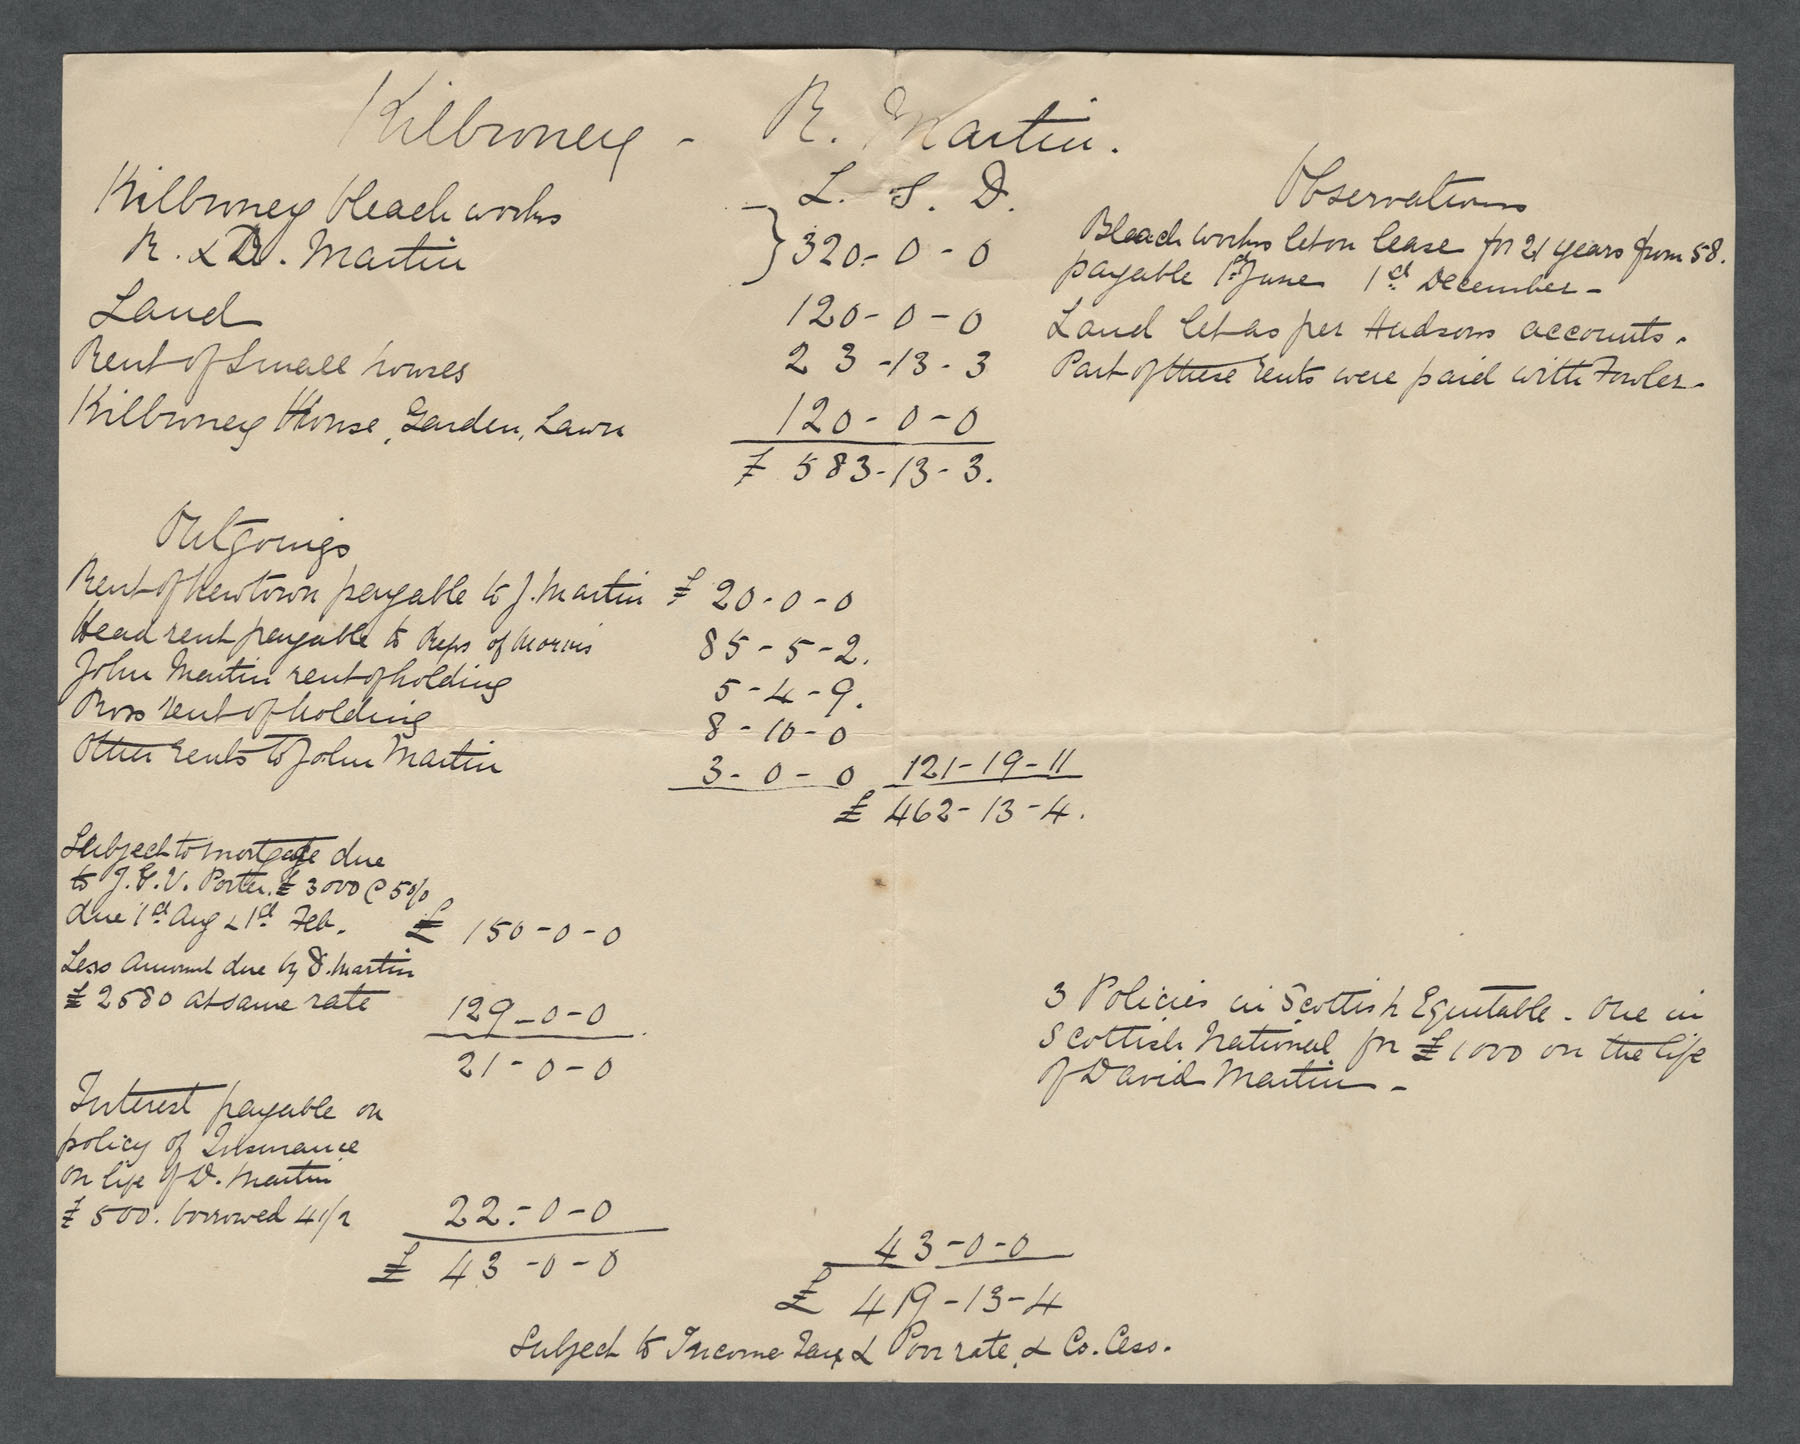 Kilbroney - R. Martin.
L. S. D.
Observations
Kilbroney bleach works
R. & D. Martin } 320 - 0 - 0
Bleach works let on lease for 21 years from 58.
payable 1st June 1st December -
Land 120 - 0 - 0 Land let as per Hudsons accounts.
Rent of Small houses 23 - 13 - 3 Part of these rents were paid with Fowler -
Kilbroney House, Garden, Lawn 120 - 0 - 0
£ 583 - 13 - 3.
Outgoings
Rent of Newtown payable to J. Martin £ 20 - 0 - 0
Head rent payable to Reps of Morris 85 - 5 - 2.
John Martin rent of holding 5 - 4 - 9.
Ross rent of holding 8 - 10 - 0
Other rents to John Martin 3 - 0 - 0 121 - 19 - 11
£ 462 - 13 - 4.
Subject to mortgage due
to J. G. V. Porter. £3000 @ 5%
due 1st Aug & 1st Feb. £ 150 - 0 - 0
Less Amount due by D. Martin
£2580 at same rate 129 - 0 - 0
21 - 0 - 0
3 Policies in Scottish Equitable - One in
Scottish National for £1000 on the life
of David Martin -
Interest payable on
policy of Insurance
on life of D. Martin
£500. borrowed 4 1/2 22 - 0 - 0
£ 43 - 0 - 0
43 - 0 - 0
£ 419 - 13 - 4
Subject to Income Tax & Poor rate, & Co. Cess.